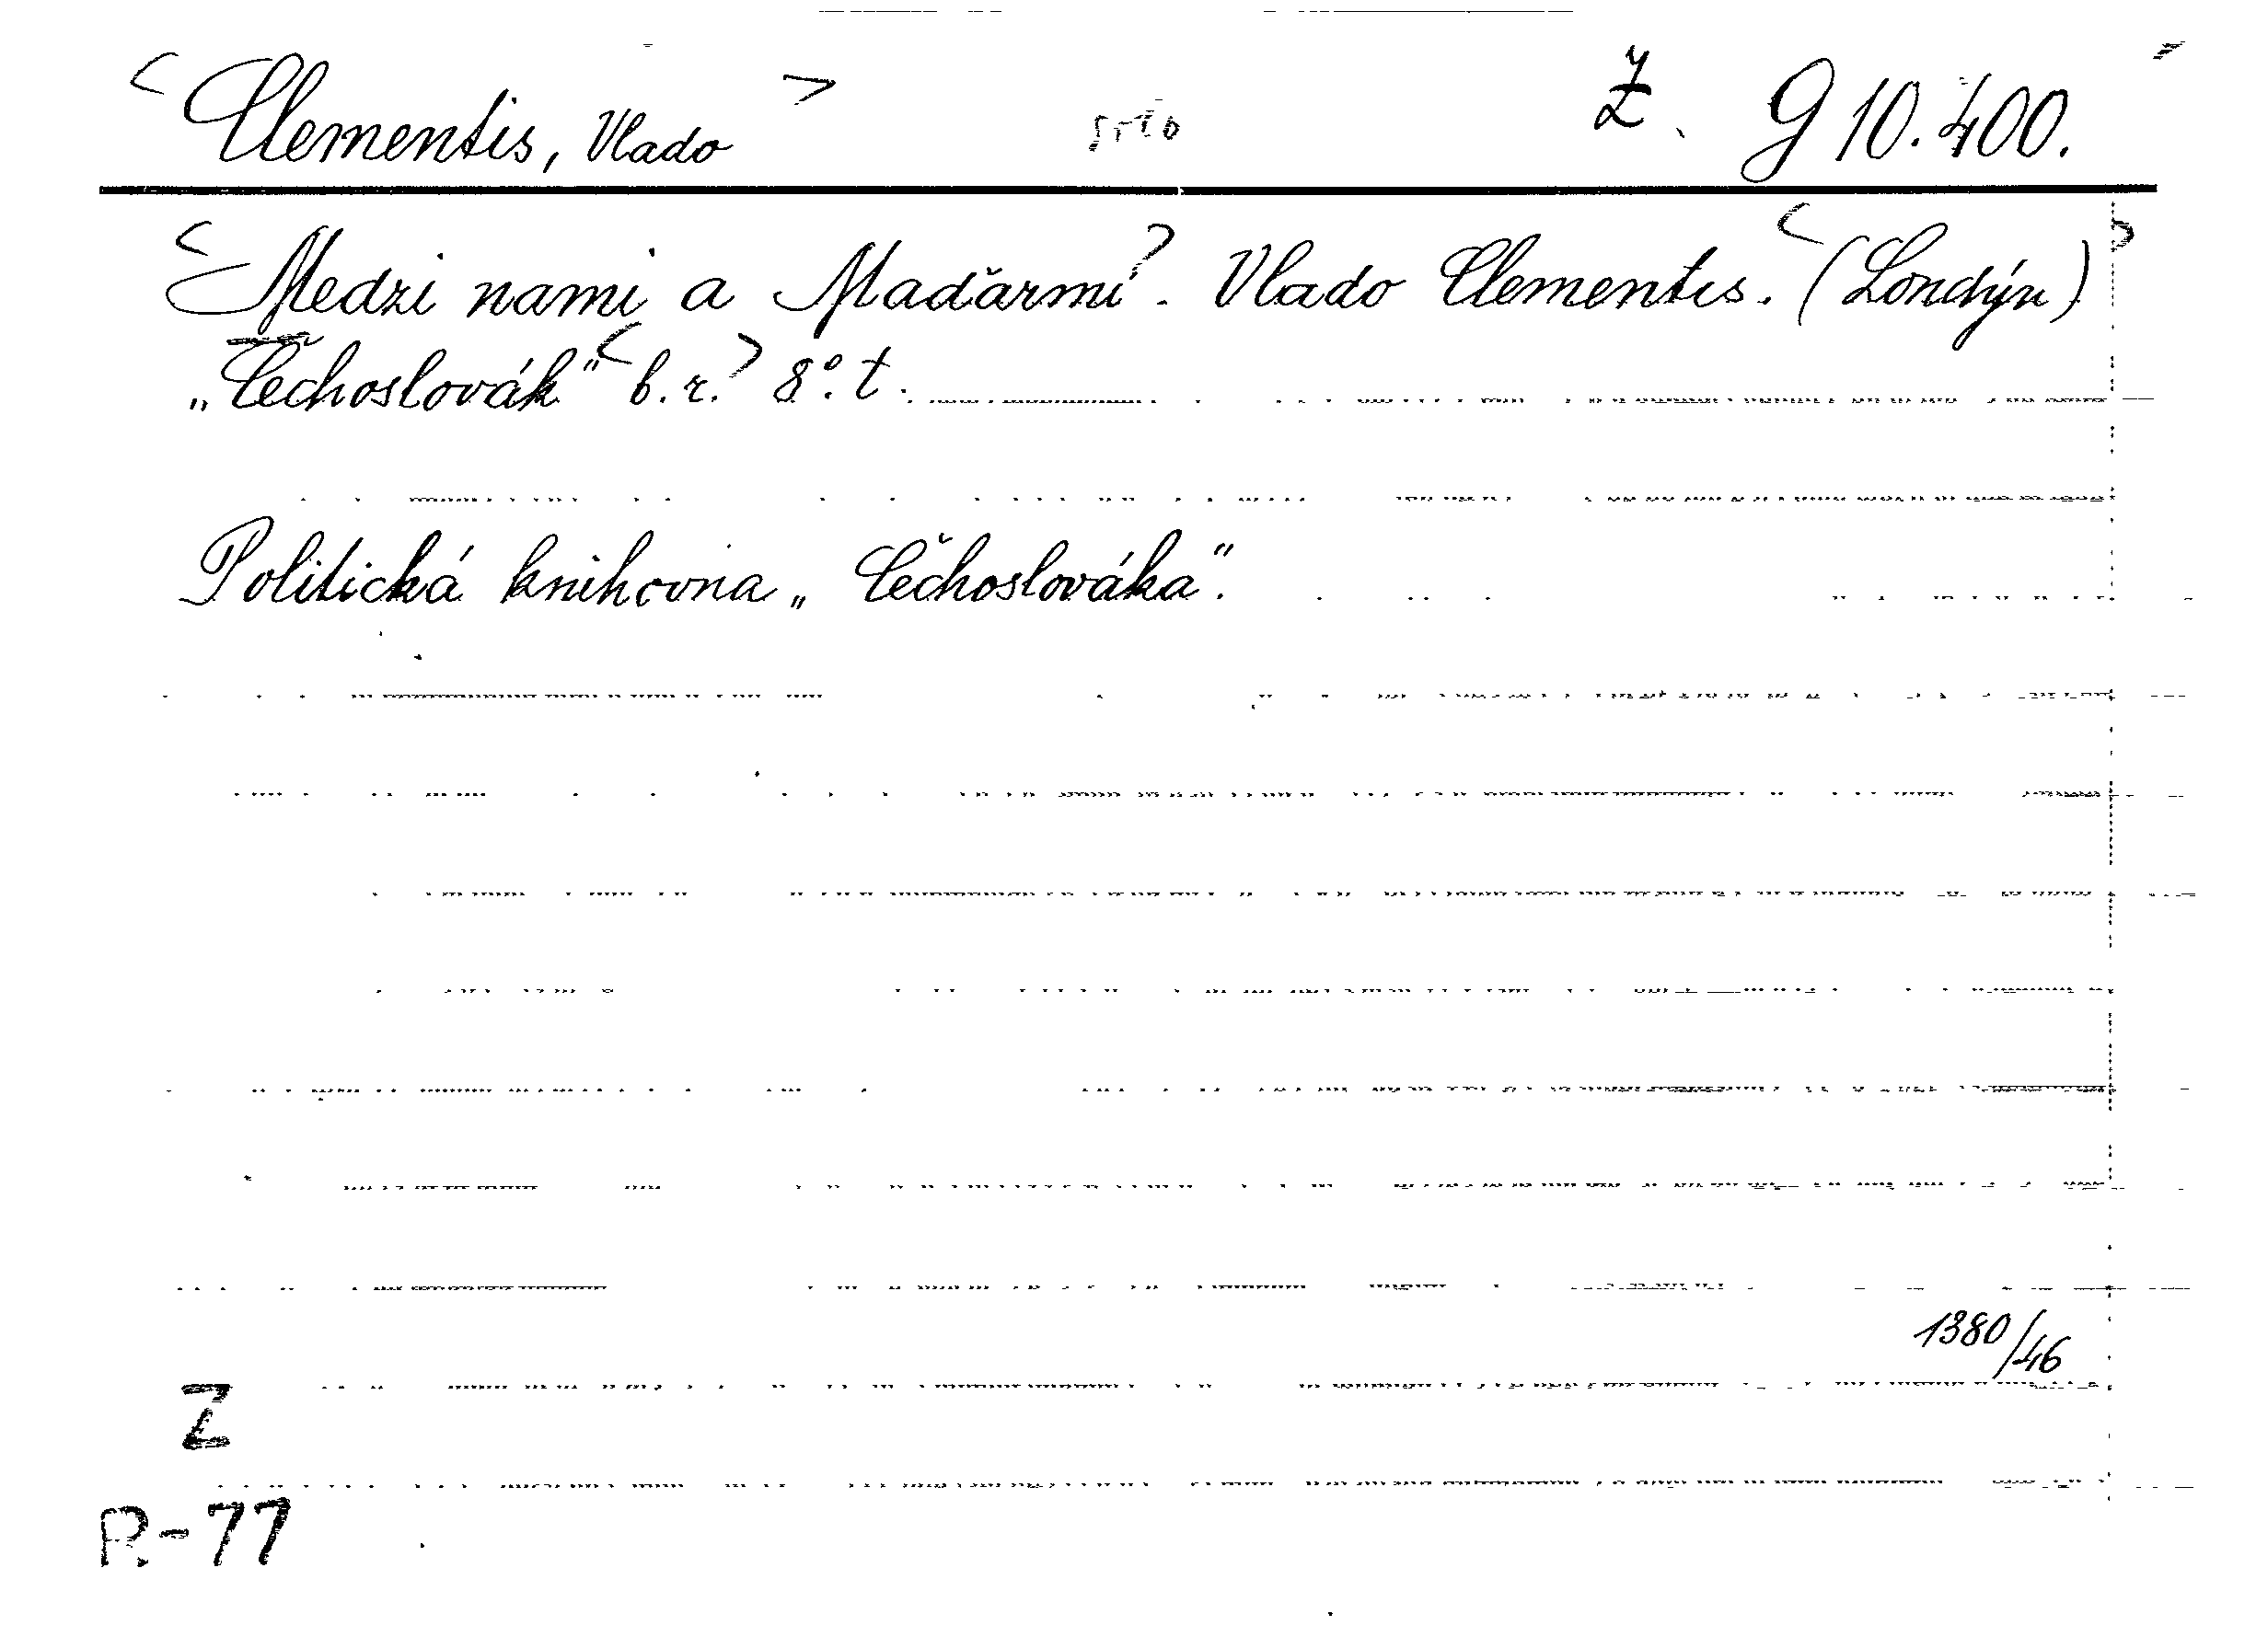 < Clementis, Vlado > Z. G 10.400.
< Medzi nami a Maďarmi > . Vlado Clementis. < (Londýn) >
„Čechoslovák“ < b. r. > 8°. t.
Politická knihovna „Čechoslováka“.
1380/46
Z
R-77